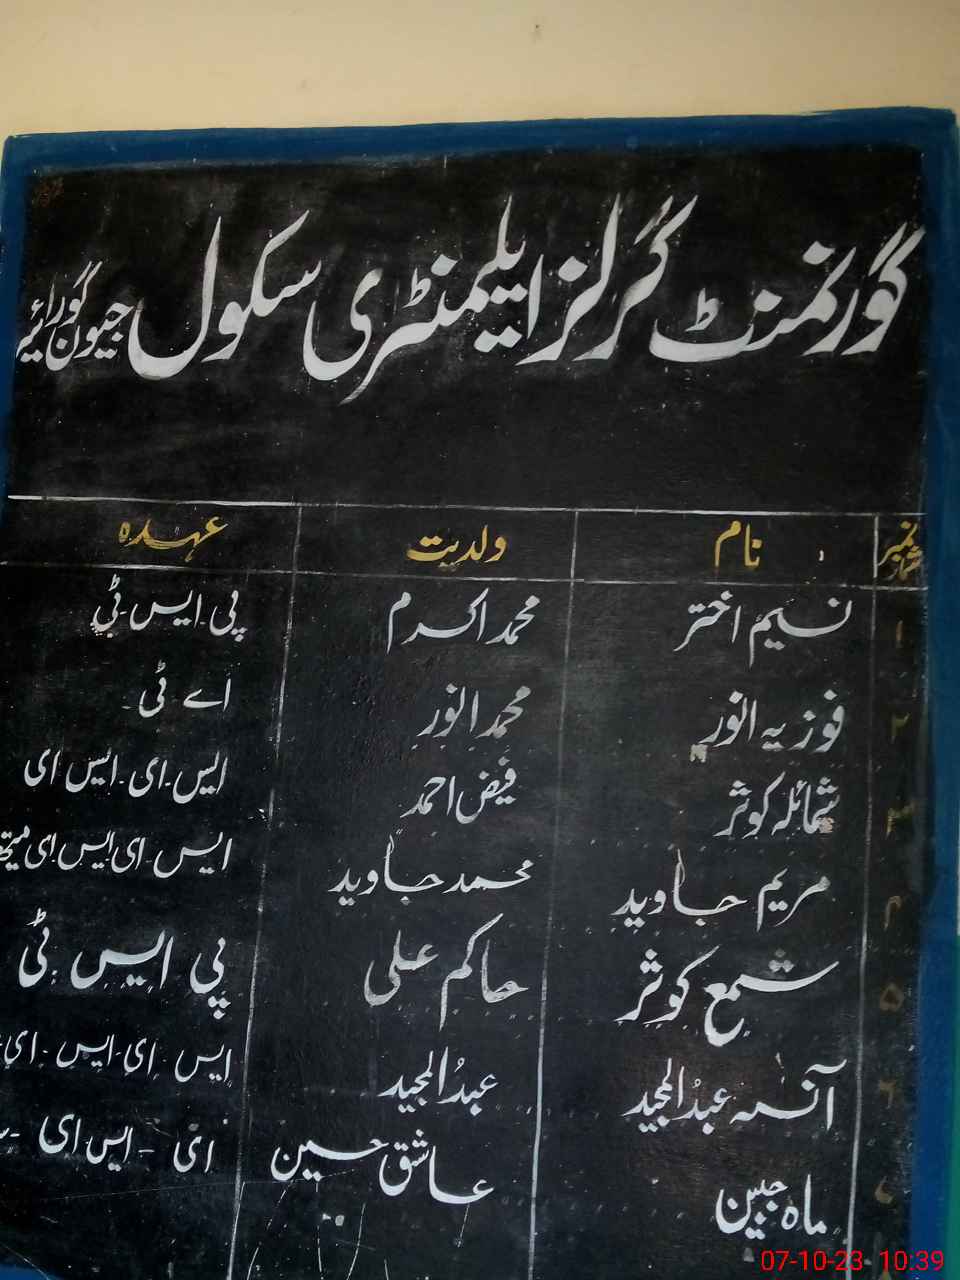 گورنمنٹ گرلز ایلیمنٹری سکول جیون گورائیہ
نمبر شمار نام ولدیت عہدہ
۱ نسیم اختر محمد اکرم پی۔ایس۔ٹی
۲ فوزیہ انور محمد انور اے ٹی۔
۳ شمائلہ کوثر فیض احمد ایس۔ای۔ایس ای
۴ مریم جاوید محمد جاوید ایس ای ایس ای میتھ
۵ شمع کوثر حاکم علی پی ایس ٹی
۶ آنسہ عبدُالمجید عبدُالمجید ایس ای۔ایس۔ای
۷ ماہ جبین عاشق حسین ای - ایس ای -
07-10-23 10:39